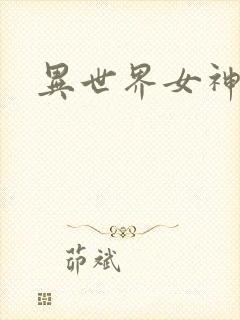 異世界女神
茆斌